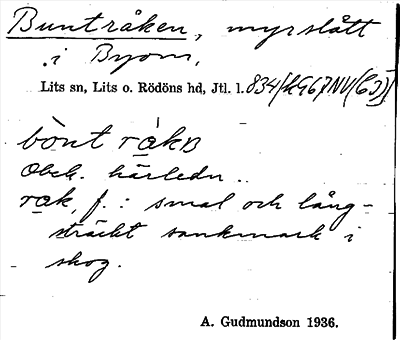 Buntråken, myrslått
i Byom,
Lits sn, Lits o. Rödöns hd, Jtl. l. 834/KG67NV(CJ)
bònt råkɴ
Obek. härledn..
rak, f.: smal och lång-
sträckt sankmark i
skog.
A. Gudmundson 1936.